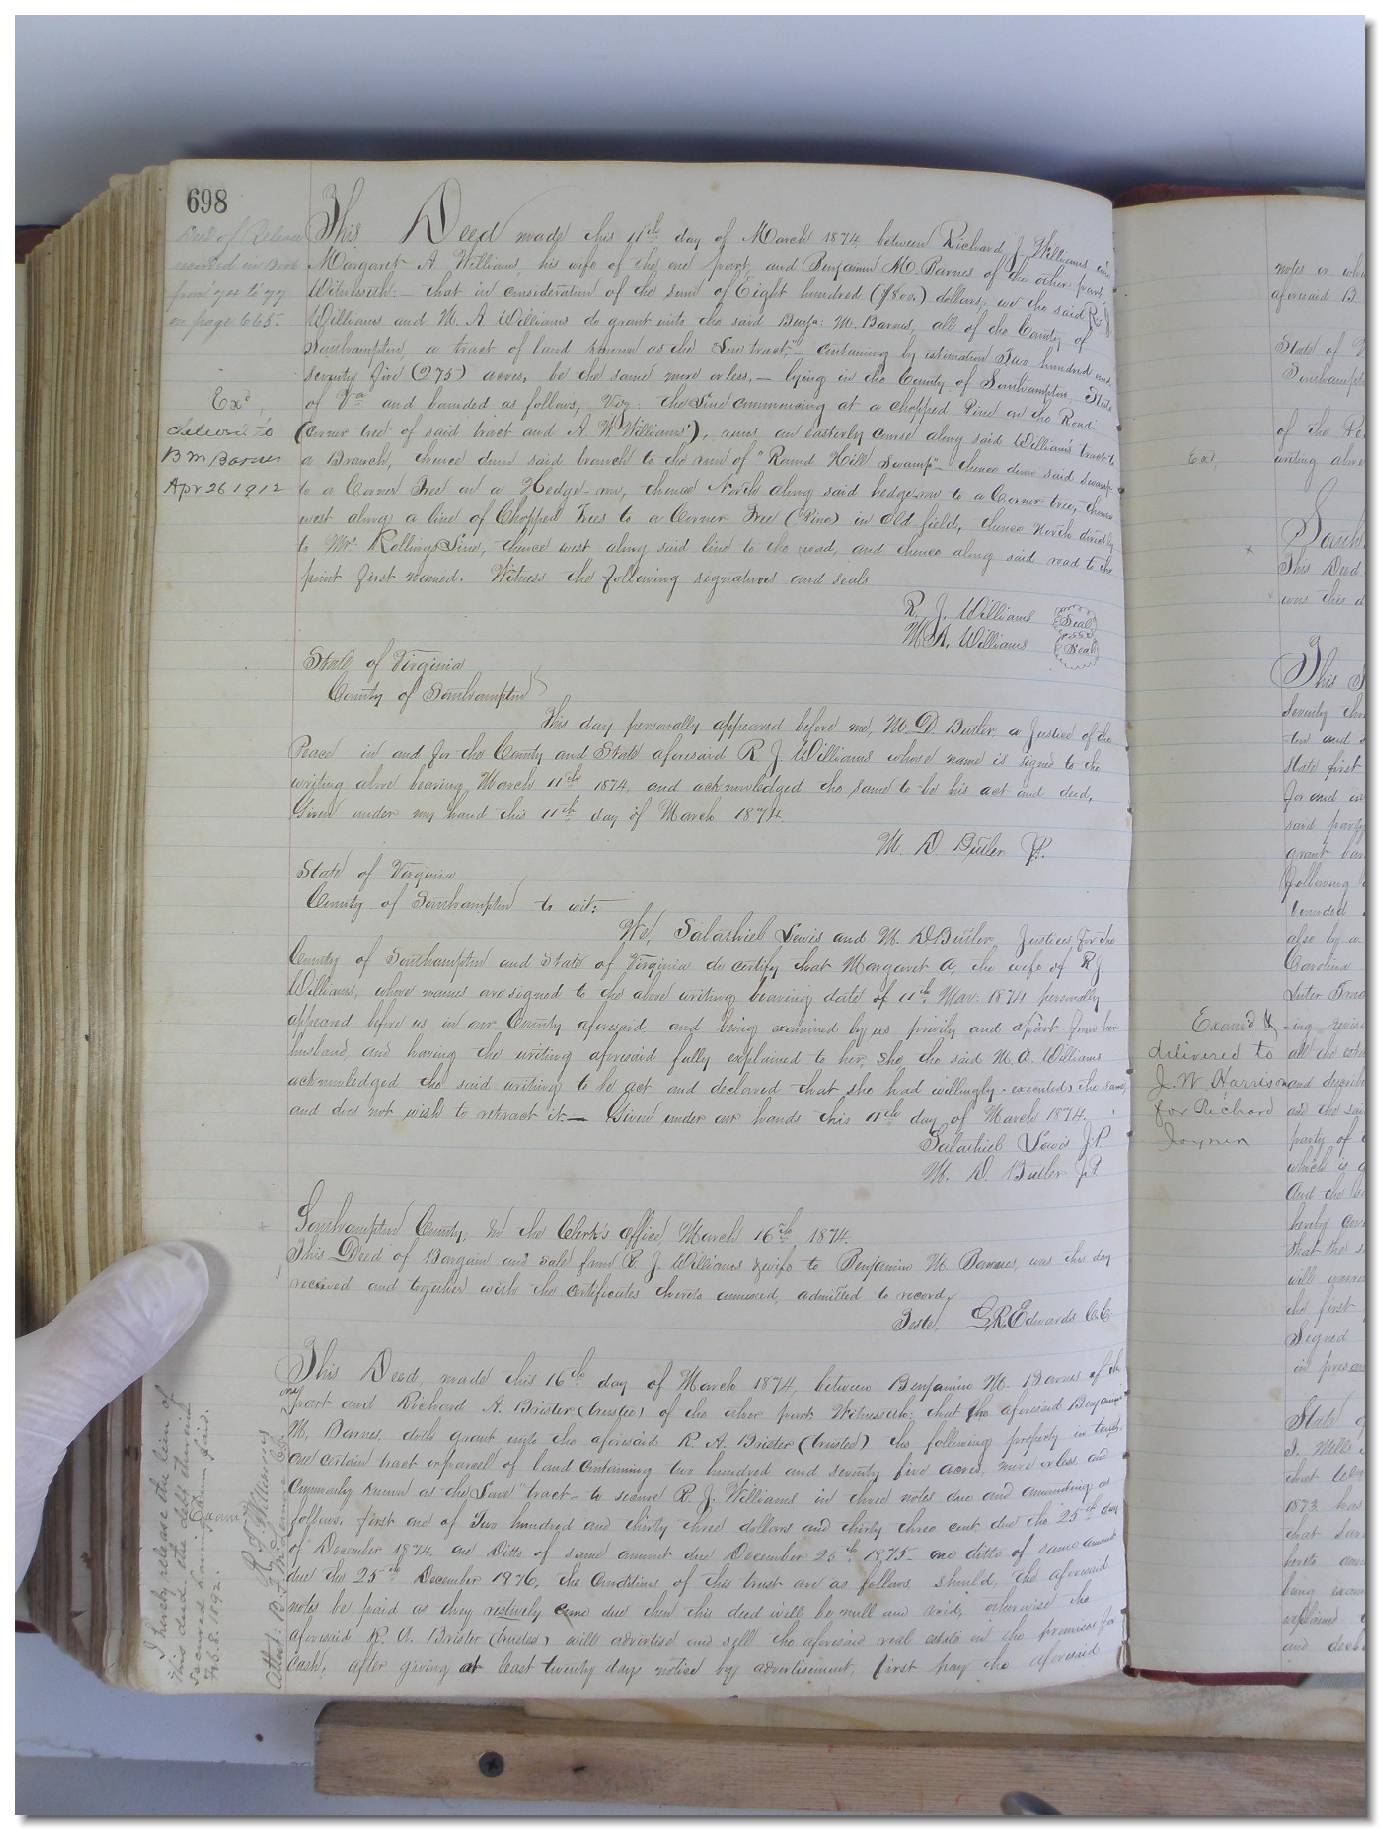 698
Deed of Release
recorded in Book
from '74 to '77
on page 665.
Exd.
delivered to
B M Barnes
Apr 26 1912
This Deed made this 11th day of March 1874 between Richard J. Williams and
Margaret A Williams, his wife of the one part, and Benjamin M. Barnes of the other part,
Witnesseth:— that in consideration of the sum of Eight hundred ($800) dollars, we the said R. J.
Williams and M. A Williams do grant unto the said Benja: M. Barnes, all of the County of
Southampton, a tract of land known as the "Line tract,"— containing by estimation Two hundred and
seventy five (275) acres, be the same more or less,— lying in the County of Southampton, State
of Va and bounded as follows, Viz: the Line commencing at a chopped Pine on the Road
(corner tree of said tract and A W Williams'), runs an easterly course along said William's tract to
a Branch, thence down said branch to the run of "Round Hill Swamp"— thence down said swamp
to a Corner Tree on a Hedge-row, thence North along said hedge-row to a Corner tree, thence
west along a line of Chopped Trees to a Corner Tree (Pine) in Old field, thence North directly
to Mrs. Rollings Line, thence west along said line to the road, and thence along said road to the
point first named. Witness the following signatures and seals
R. J. Williams Seal
M. A. Williams Seal
State of Virginia
County of Southampton
This day personally appeared before me, M. D. Butler a Justice of the
Peace in and for the County and State aforesaid R. J. Williams whose name is signed to the
writing above bearing March 11th 1874, and acknowledged the same to be his act and deed,
Given under my hand this 11th day of March 1874.
M. D Butler J.P.
State of Virginia
County of Southampton to wit:
We, Salathiel Lewis and M. D Butler, Justices for the
County of Southampton and State of Virginia do certify that Margaret A, the wife of R J
Williams, whose names are signed to the above writing bearing date of 11th Mar: 1874 personally
appeared before us in our County aforesaid, and being examined by us privily and apart from her
husband, and having the writing aforesaid fully explained to her, she the said M. A. Williams
acknowledged the said writing to be act and declared that she had willingly executed the same,
and did not wish to retract it.— Given under our hands this 11th day of March 1874.
Salathiel Lewis J.P.
M. D. Butler J.P
Southampton County, In the Clerk's office, March 16th 1874.
This Deed of Bargain and sale from R. J. Williams & wife to Benjamin M. Barnes, was this day
received and together with the certificates thereto annexed, admitted to record,
Teste, L. R. Edwards C.C.
This Deed, made this 16th day of March 1874, between Benjamin M. Barnes of the
one part and Richard A. Brister (trustee) of the other part Witnesseth: that the aforesaid Benjamin
M. Barnes, doth grant unto the aforesaid R. A. Brister (trustee) the following property in trust,
one certain tract or parcel of land containing two hundred and seventy five acres, more or less and
Commonly known as the "Line" tract— to secure R. J. Williams in three notes due and amounting as
follows, first one of Two hundred and thirty three dollars and thirty three cent, due the 25th day
of December 1874, one Ditto of same amount due December 25th 1875. one ditto of same amount
due the 25th December 1876, the Conditions of this trust are as follows, should, the aforesaid
notes be paid as they restively come due then this deed will be null and void, otherwise the
aforesaid R. A. Brister (trustee) will advertise and sell the aforesaid real estate on the premises for
Cash, after giving at least twenty days notice by advertisement, first pay the aforesaid
Exam
I hereby release the lien of
this deed, the debt therein
secured having been paid.
Feb. 8. 1892.
R. J. Williams
Attest: B. F. McLemore Clk.
notes or
aforesaid B
State of
Southampt
of the
writing above
Exd,
South
This Deed
was this d
This
seventy
ten and
state first
for and
said party
grant
following
bounded
also by a
Carolina
Examd &
delivered to
J. W. Harrison
for Richard
Joyner
all the
and
and the said
party of
which is
And the
hereby
that the
will
the first
Signed
in
State
that
1873 has
that
hereto
being
explained
and